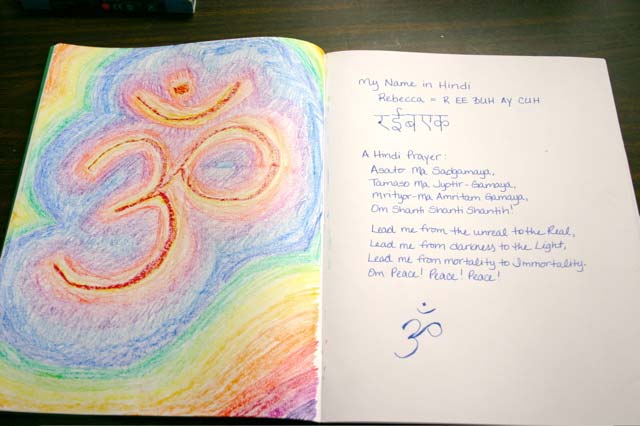 ॐ
My Name in Hindi
Rebecca = R EE BUH AY CUH
रईबएक
A Hindi Prayer:
Asato Ma Sadgamaya,
Tamaso Ma Jyotir-Gamaya,
Mrityor-Ma Amritam Gamaya,
Om Shanti Shanti Shantih!
Lead me from the unreal to the Real,
Lead me from darkness to the Light,
Lead me from mortality to Immortality.
Om Peace! Peace! Peace!
ॐ